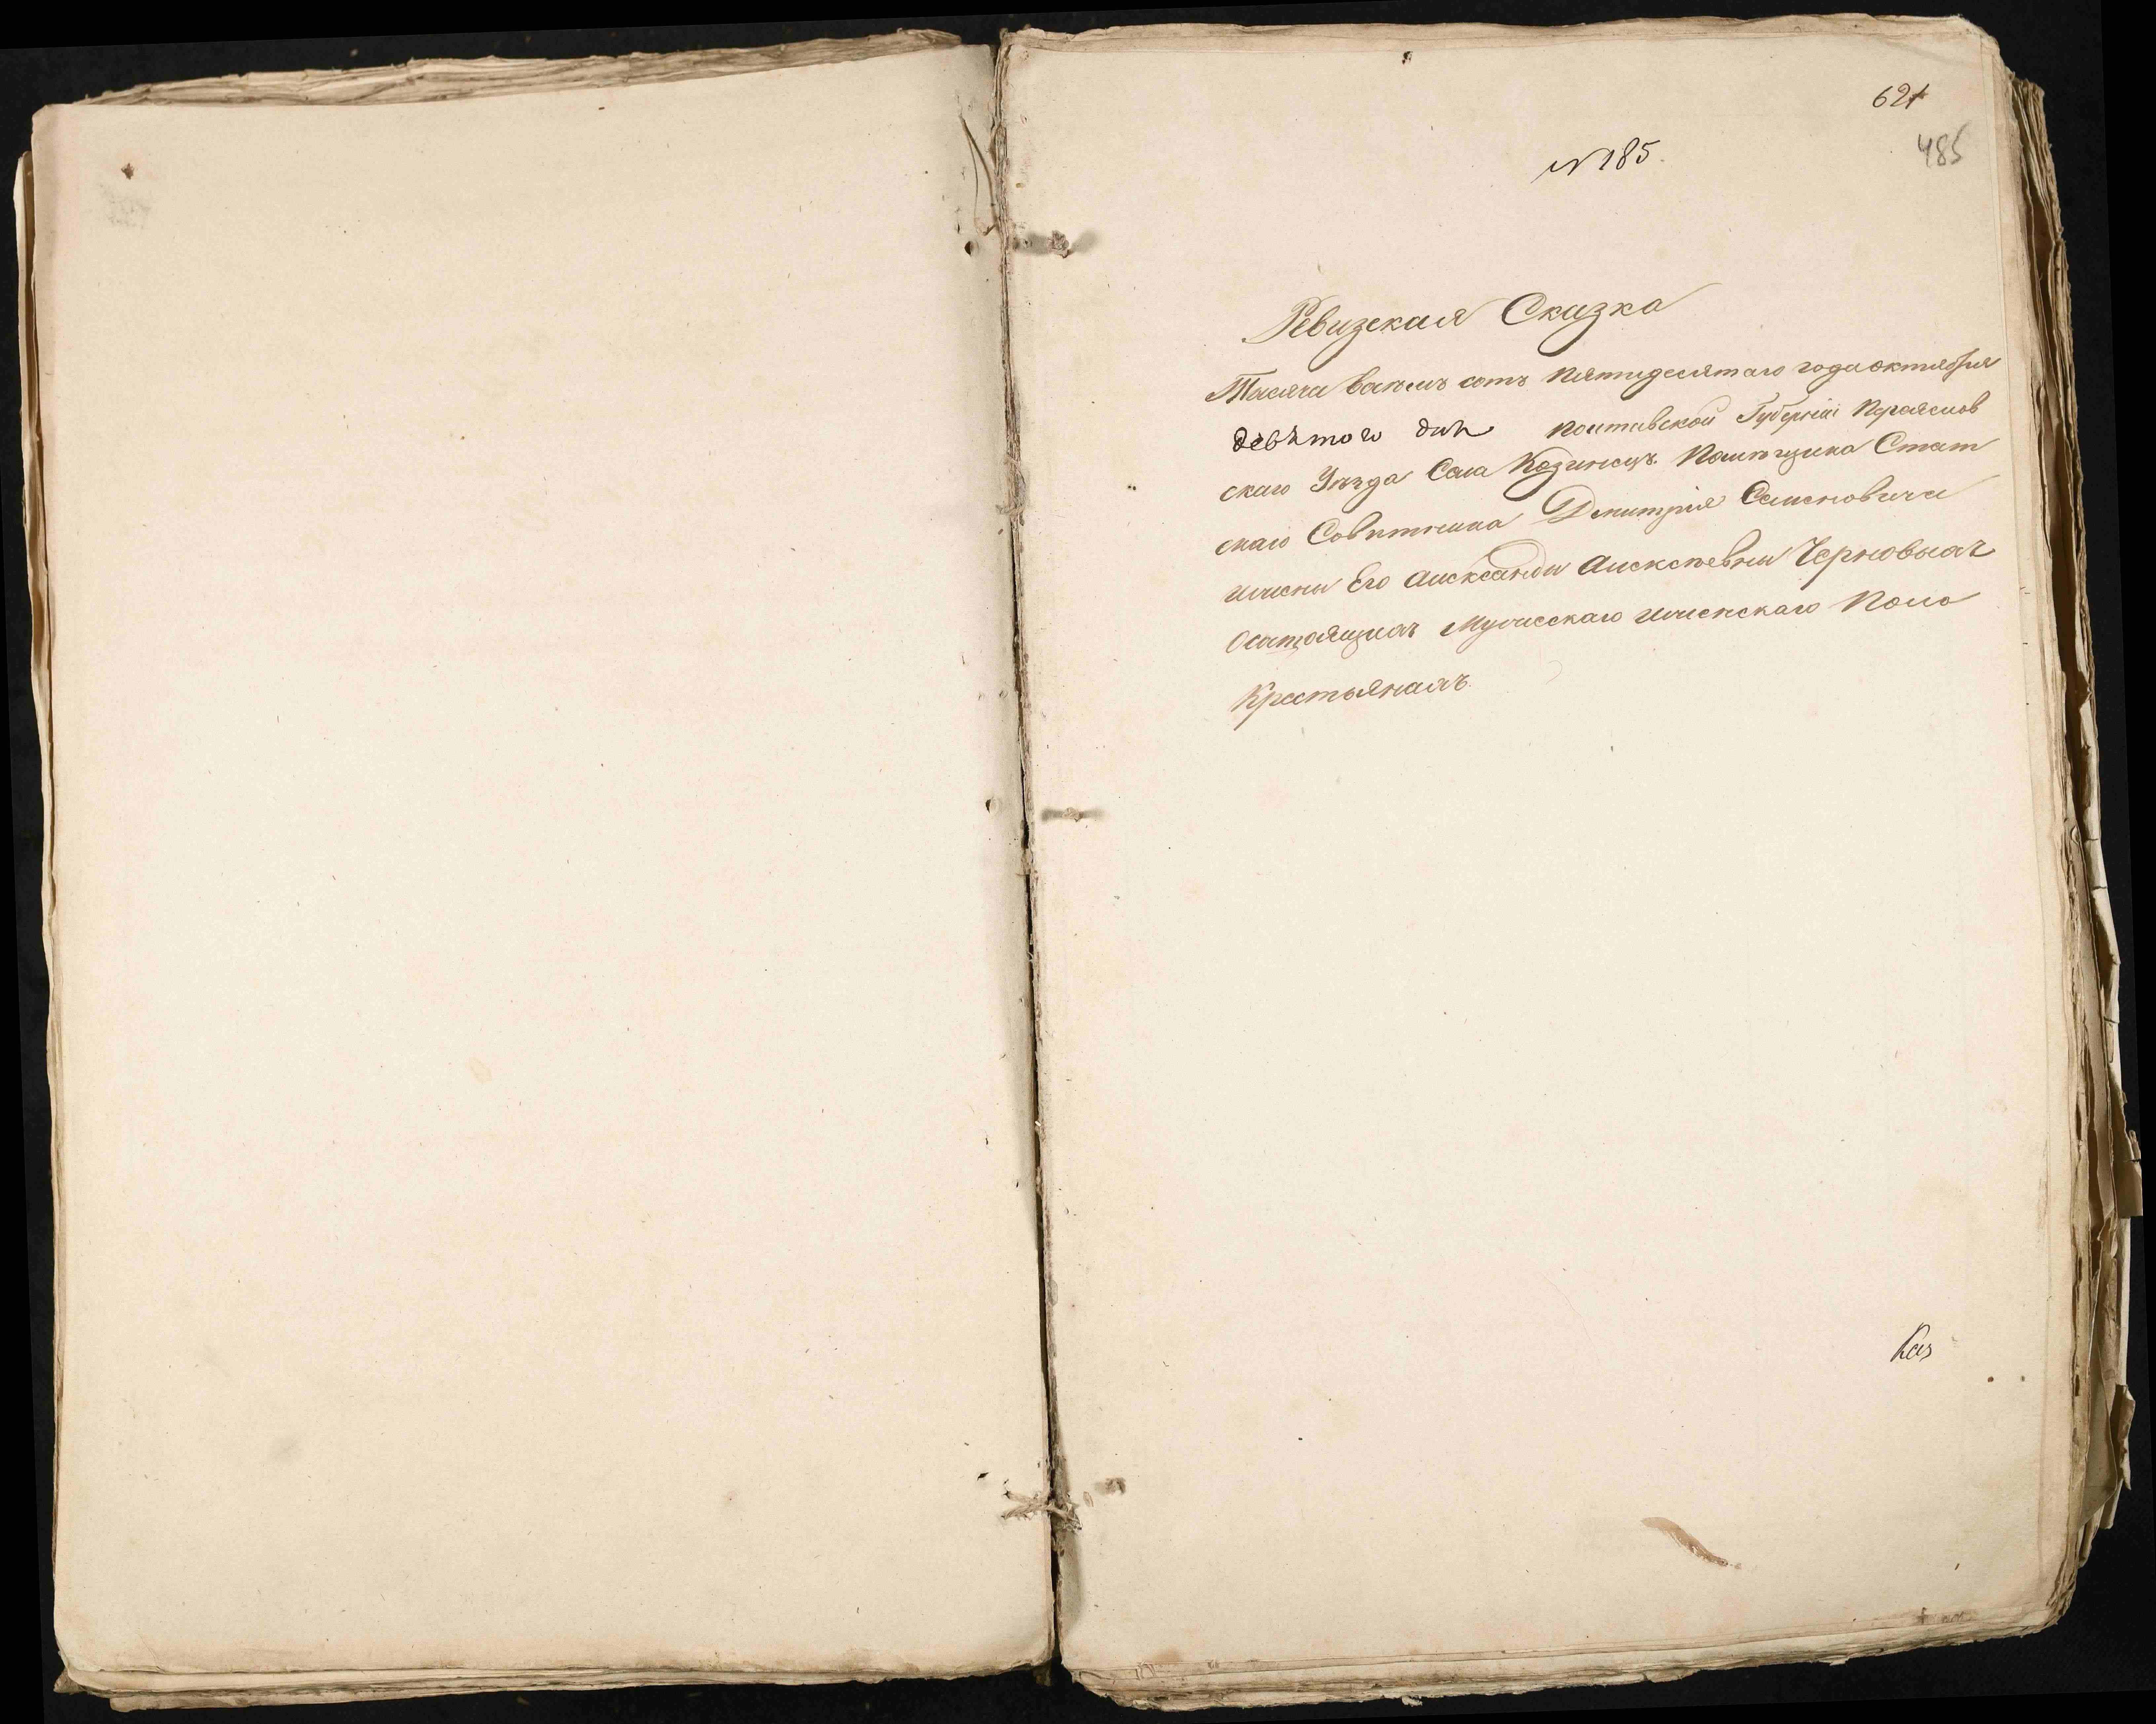 621
485
№ 185.
Ревизская Сказка
Тысяча восемь сотъ пятидесятаго года октября
девѣтого дня Полтавской Губерніи Пераяслов
скаго Уѣзда Села Козинецъ Помѣщика Стат
скаго Совѣтника Дмитрия Семеновича
жены Его Александры Алексѣевны Черновыхъ
о состоящихъ Мужескаго женскаго Пола
Крестьянахъ.